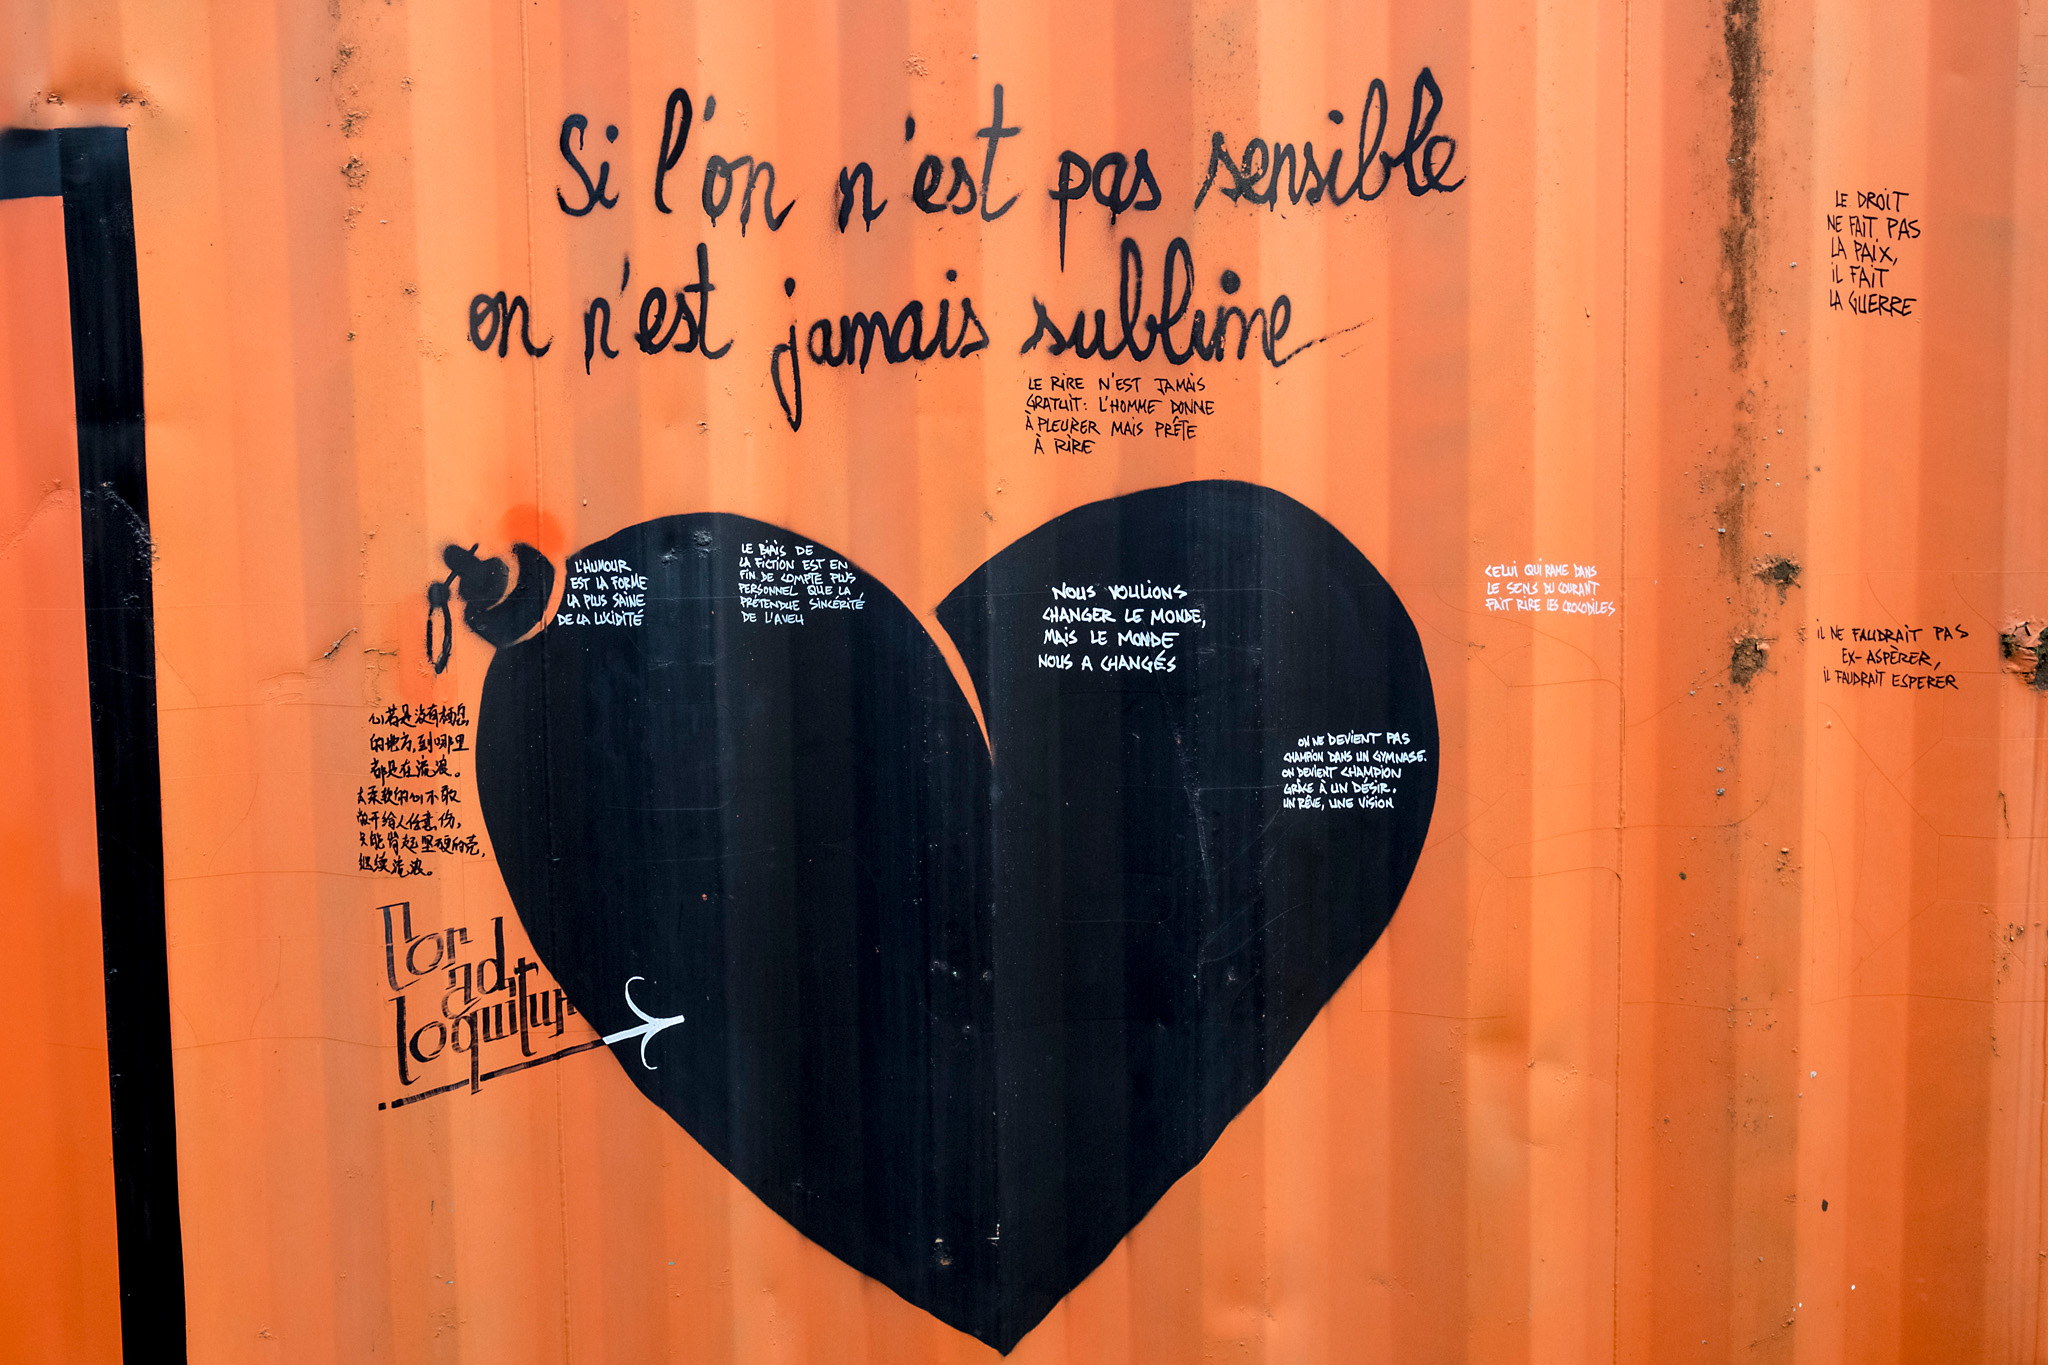 Si l'on n'est pas sensible
on n'est jamais sublime
LE RIRE N'EST JAMAIS
GRATUIT: L'HOMME DONNE
À PLEURER MAIS PRÊTE
À RIRE
LE DROIT
NE FAIT PAS
LA PAIX,
IL FAIT
LA GUERRE
L'HUMOUR
EST LA FORME
LA PLUS SAINE
DE LA LUCIDITÉ
LE BIAIS DE
LA FICTION EST EN
FIN DE COMPTE PLUS
PERSONNEL QUE LA
PRÉTENDUE SINCÉRITÉ
DE L'AVEU
NOUS VOULIONS
CHANGER LE MONDE,
MAIS LE MONDE
NOUS A CHANGÉS
CELUI QUI RAME DANS
LE SENS DU COURANT
FAIT RIRE LES CROCODILES
IL NE FAUDRAIT PAS
EX-ASPÈRER,
IL FAUDRAIT ESPERER
ON NE DEVIENT PAS
CHAMPION DANS UN GYMNASE.
ON DEVIENT CHAMPION
GRÂCE À UN DÉSIR.
UN RÊVE, UNE VISION
心若是没有栖息
的地方,到哪里
都是在流浪。
太柔软的心不敢
敞开给人任意伤,
只能背起坚硬的壳,
继续流浪。
loquitur